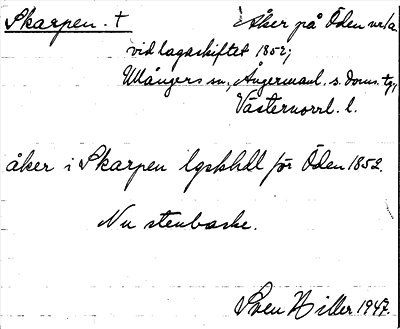 Skarpen. †
Åker på Öden nr 1 a
vid lagaskiftet 1852;
Ullångers sn, Ångermanl. s. doms. tg,
Västernorrl. l.
åker i Skarpen lgskhdl för Öden 1852.
Nu stenbacke.
Sven Hiller 1947.